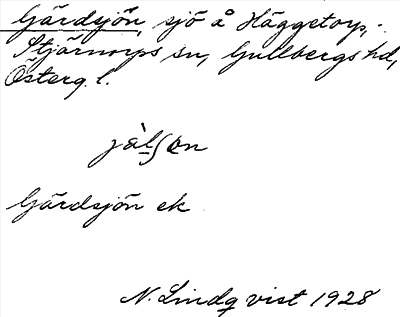 Gärdsjön, sjö å Häggetorp,
Stjärnorps sn, Gullbergs hd,
Österg. l.
Gärdsjön ek
N. Lindqvist 1928